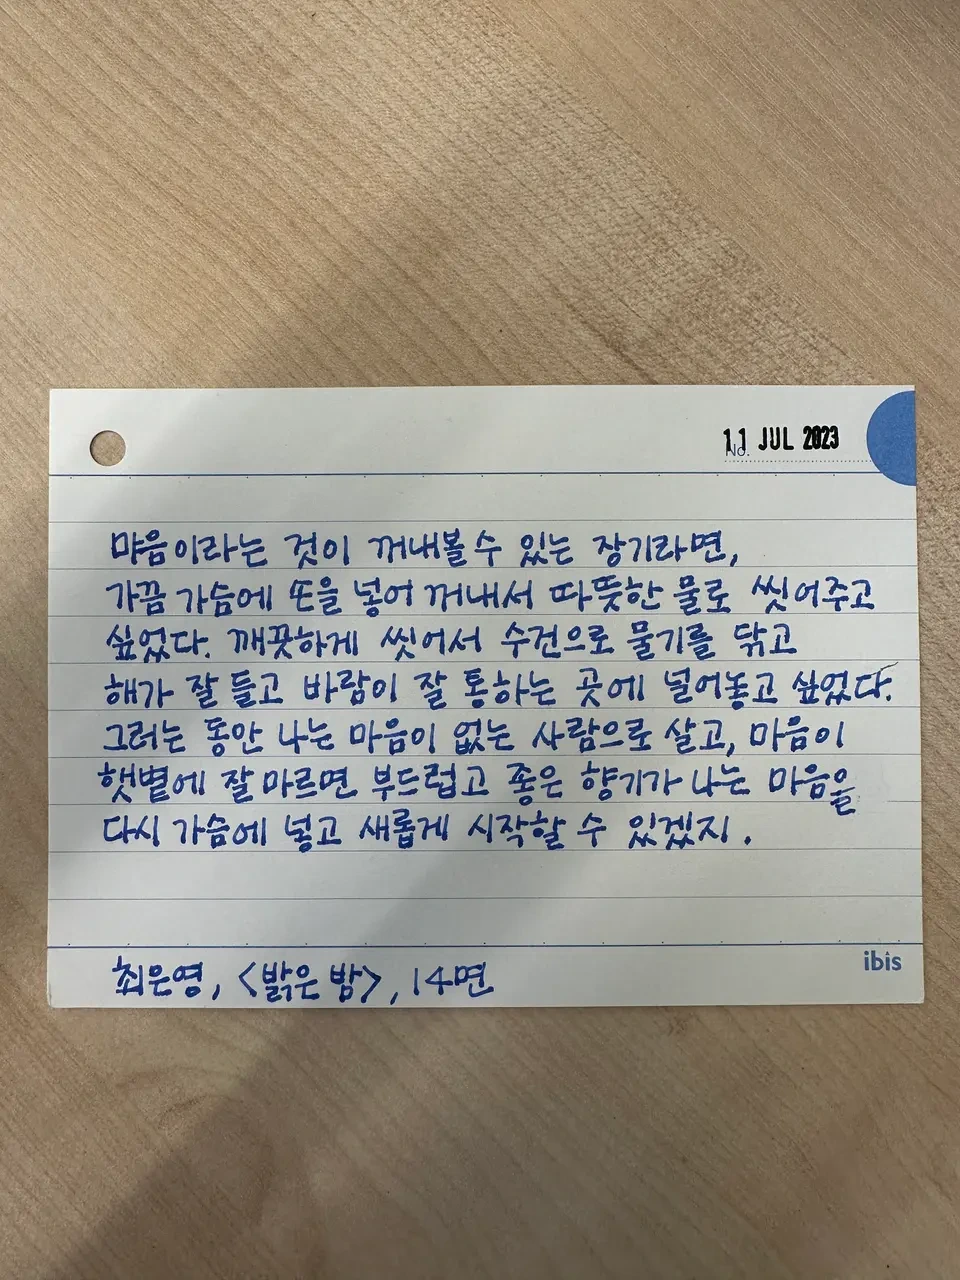 11 JUL 2023
No.
마음이라는 것이 꺼내볼 수 있는 장기라면,
가끔 가슴에 손을 넣어 꺼내서 따뜻한 물로 씻어주고
싶었다. 깨끗하게 씻어서 수건으로 물기를 닦고
해가 잘 들고 바람이 잘 통하는 곳에 널어놓고 싶었다.
그러는 동안 나는 마음이 없는 사람으로 살고, 마음이
햇볕에 잘 마르면 부드럽고 좋은 향기가 나는 마음을
다시 가슴에 넣고 새롭게 시작할 수 있겠지.
ibis
최은영, <밝은 밤>, 14면